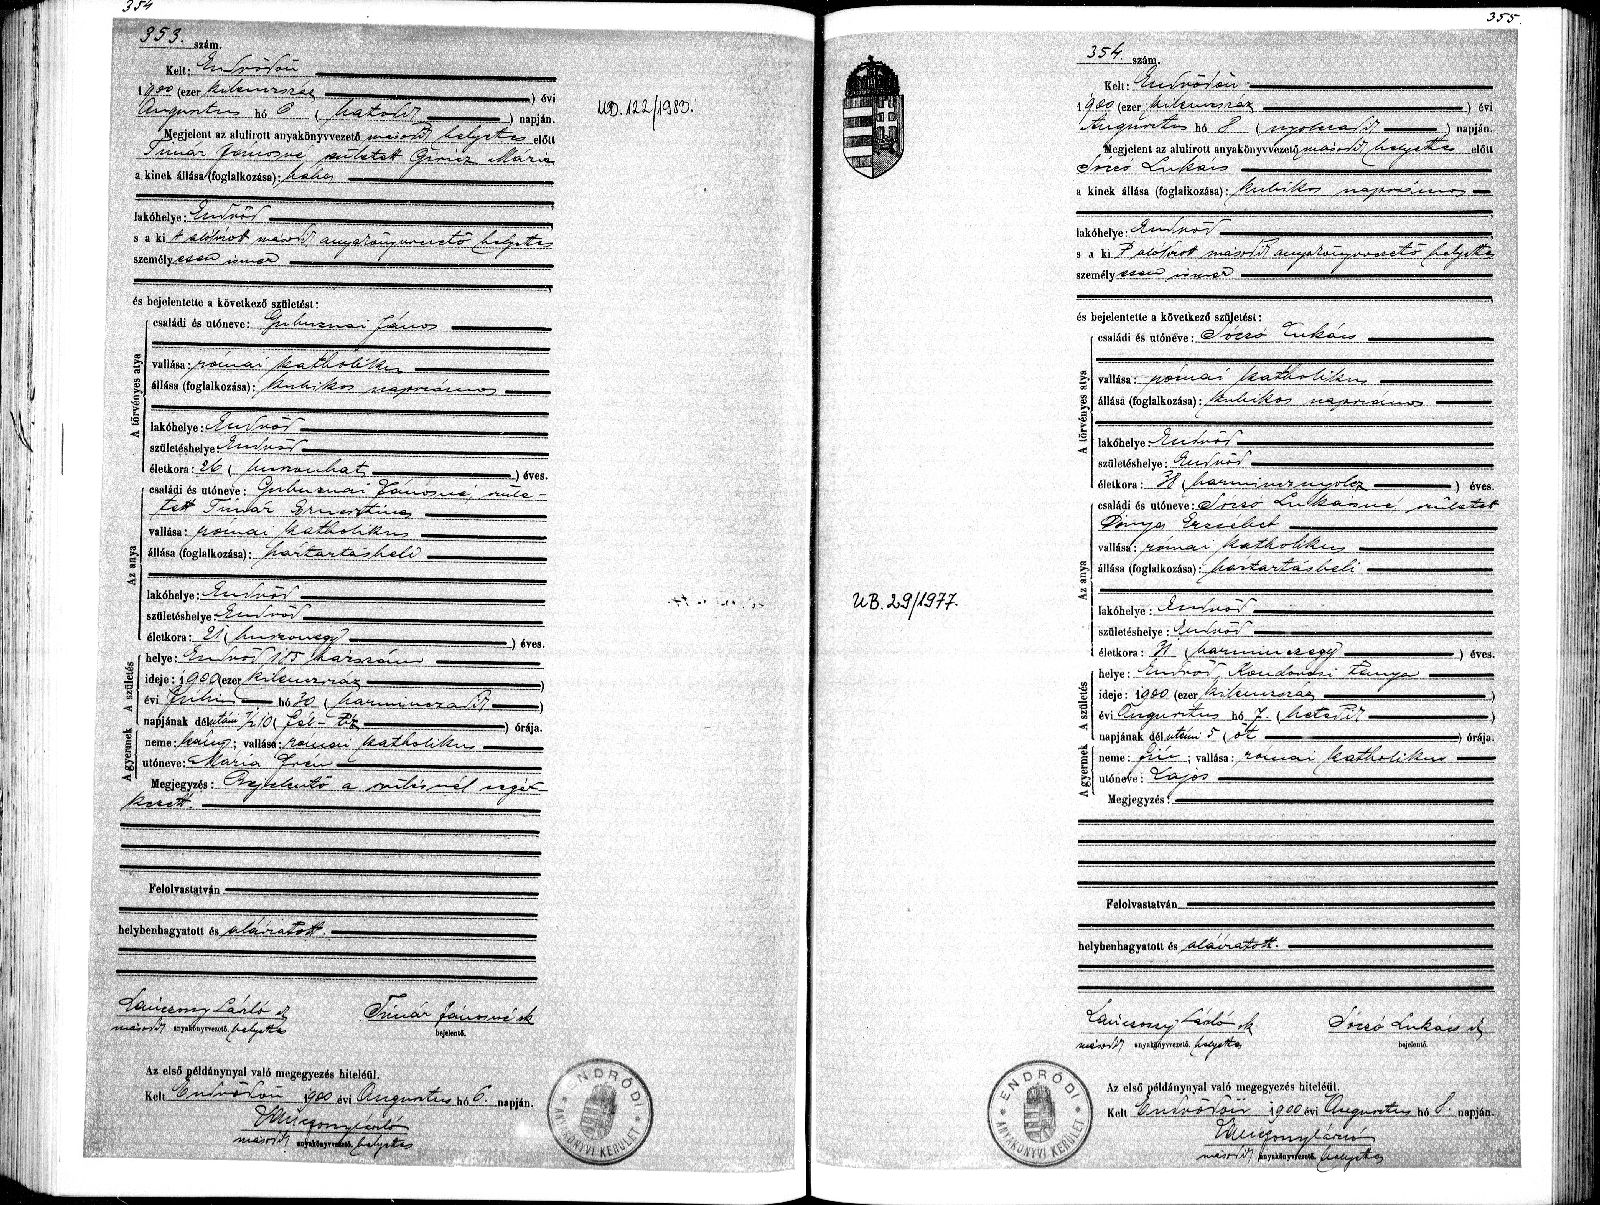 354
353. szám.
Kelt: Endrődön
1900 (ezer kilenczszáz ) évi
Augusztus hó 6 ( hatodik ) napján.
Megjelent az alulirott anyakönyvvezető másodh helyettes előtt
Tímár Jánosné született Giricz Mária
a kinek állása (foglalkozása): bába
lakóhelye: Endrőd
s a kit alólírott másodh anyakönyvvezető helyettes
személyesen ismer
és bejelentette a következő születést:
A törvényes atya
családi és utóneve: Gubucznai János
vallása: római katholikus
állása (foglalkozása): kubikos napszámos
lakóhelye: Endrőd
születéshelye: Endrőd
életkora: 26 ( huszonhat ) éves.
Az anya
családi és utóneve: Gubucznai Jánosné szüle-
tett Tímár Ernesztina
vallása: római katholikus
állása (foglalkozása): háztartásbeli
lakóhelye: Endrőd
születéshelye: Endrőd
életkora: 21 ( huszonegy ) éves.
A születés
helye: Endrőd 115 házszám
ideje: 1900 (ezer kilenczszáz )
évi Julius hó 30 ( harminczadik )
napjának délután 1/2 10 ( fél-tíz ) órája.
A gyermek
neme: leány; vallása: római katholikus
utóneve: Mária
Megjegyzés: Bejelentő a szülésnél segéd-
kezett.
Felolvastatván
helybenhagyatott és aláíratott.
Laucsony László sk
másodh anyakönyvvezető. helyettes
Tímár Jánosné sk
bejelentő.
Az első példánynyal való megegyezés hiteléül.
Kelt Endrődön 1900 évi Augusztus hó 6. napján.
Laucsony László
másodh anyakönyvvezető. helyettes
ENDRŐDI
ANYAKÖNYVI KERÜLET
UB. 122/1983.
355.
354. szám.
Kelt: Endrődön
1900 (ezer kilenczszáz ) évi
Augusztus hó 8 ( nyolczadik ) napján.
Megjelent az alulirott anyakönyvvezető másodh helyettes előtt
Sóczó Lukács
a kinek állása (foglalkozása): kubikos napszámos
lakóhelye: Endrőd
s a kit alólírott másodh anyakönyvvezető helyettes
személyesen ismer
és bejelentette a következő születést:
A törvényes atya
családi és utóneve: Sóczó Lukács
vallása: római katholikus
állása (foglalkozása): kubikos napszámos
lakóhelye: Endrőd
születéshelye: Endrőd
életkora: 38 ( harmincznyolcz ) éves.
Az anya
családi és utóneve: Sóczó Lukácsné született
Dinya Erzsébet
vallása: római katholikus
állása (foglalkozása): háztartásbeli
lakóhelye: Endrőd
születéshelye: Endrőd
életkora: 31 ( harminczegy ) éves.
A születés
helye: Endrőd, Kondorosi tanya
ideje: 1900 (ezer kilenczszáz )
évi Augusztus hó 7. ( hetedik )
napjának délutáni 5 ( öt ) órája.
A gyermek
neme: fiú; vallása: római katholikus
utóneve: Lajos
Megjegyzés:
Felolvastatván
helybenhagyatott és aláíratott.
Laucsony László sk
másodh anyakönyvvezető. helyettes
Sóczó Lukács sk
bejelentő.
Az első példánynyal való megegyezés hiteléül.
Kelt Endrődön 1900 évi Augusztus hó 8. napján.
Laucsony László
másodh anyakönyvvezető. helyettes
ENDRŐDI
ANYAKÖNYVI KERÜLET
UB. 29/1977.